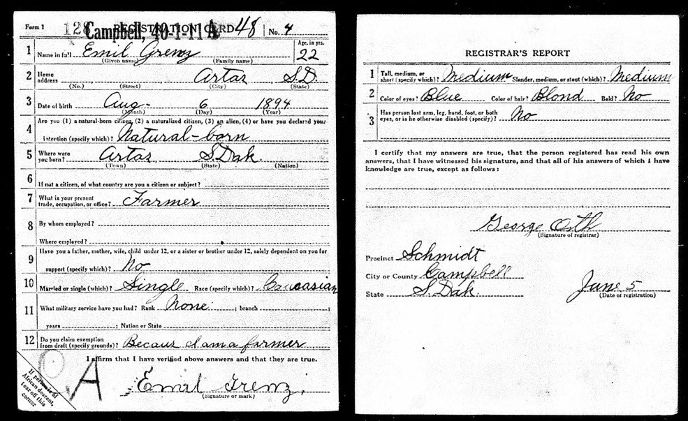 Form 1 REGISTRATION CARD 48 No. 4
Campbell, 40-1-11 A
1 Name in full Emil Grenz Age, in yrs. 22
(Given name) (Family name)
2 Home address Artas S.D.
(No.) (Street) (City) (State)
3 Date of birth Aug- 6 1894
(Month) (Day) (Year)
4 Are you (1) a natural-born citizen, (2) a naturalized citizen, (3) an alien, (4) or have you declared your
intention (specify which)? Natural-born
5 Where were you born? Artas S. Dak.
(Town) (State) (Nation)
6 If not a citizen, of what country are you a citizen or subject?
7 What is your present trade, occupation, or office? Farmer
8 By whom employed?
Where employed?
9 Have you a father, mother, wife, child under 12, or a sister or brother under 12, solely dependent on you for
support (specify which)? No
10 Married or single (which)? Single Race (specify which)? Caucasian
11 What military service have you had? Rank None ; branch
years ; Nation or State
12 Do you claim exemption from draft (specify grounds)? Becaus I am a farmer
I affirm that I have verified above answers and that they are true.
A
Emil Grenz.
(Signature or mark)
If person is of African descent, tear off this corner
REGISTRAR'S REPORT
1 Tall, medium, or short (specify which)? Medium Slender, medium, or stout (which)? Medium
2 Color of eyes? Blue Color of hair? Blond Bald? No
3 Has person lost arm, leg, hand, foot, or both
eyes, or is he otherwise disabled (specify)? No
I certify that my answers are true, that the person registered has read his own
answers, that I have witnessed his signature, and that all of his answers of which I have
knowledge are true, except as follows:
George Orth
(Signature of registrar)
Precinct Schmidt
City or County Campbell
State S. Dak. June 5
(Date of registration)